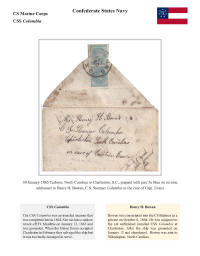 CS Marine Corps
Confederate States Navy
CSS Columbia
10 January 1865 Tarboro, North Carolina to Charleston, S.C., prepaid with pair 5c blue on reverse
addressed to Henry H. Bowen, C.S. Steamer Columbia in the care of Capt. Evans
CSS Columbia
Henry H. Bowen
The CSS Columbia was an ironclad steamer that
was completed late in 1864. She ran into a sunken
wreck off Ft. Moultrie on January 12, 1865 and
was grounded. When the Union forces occupied
Charleston in February they salvaged the ship but
it was too badly damaged to serve.
Bowen was conscripted into the CS Marines as a
private on October 6, 1864. He was assigned to
the yet unfinished ironclad CSS Columbia at
Charleston. After the ship was grounded on
January 12 and abandoned, Bowen was sent to
Wilmington, North Carolina.